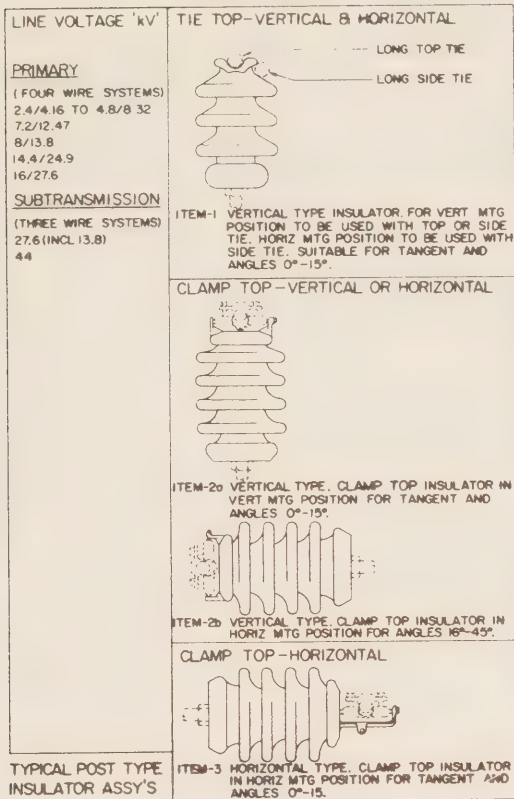 LINE VOLTAGE 'kV'
PRIMARY
(FOUR WIRE SYSTEMS)
2.4/4.16 TO 4.8/8 32
7.2/12.47
8/13.8
14.4/24.9
16/27.6
SUBTRANSMISSION
(THREE WIRE SYSTEMS)
27.6 (INCL 13.8)
44
TYPICAL POST TYPE
INSULATOR ASSY'S
TIE TOP-VERTICAL & HORIZONTAL
LONG TOP TIE
LONG SIDE TIE
ITEM-1 VERTICAL TYPE INSULATOR. FOR VERT MTG
POSITION TO BE USED WITH TOP OR SIDE
TIE. HORIZ MTG POSITION TO BE USED WITH
SIDE TIE. SUITABLE FOR TANGENT AND
ANGLES 0°-15°.
CLAMP TOP-VERTICAL OR HORIZONTAL
ITEM-2a VERTICAL TYPE. CLAMP TOP INSULATOR IN
VERT MTG POSITION FOR TANGENT AND
ANGLES 0°-15°.
ITEM-2b VERTICAL TYPE. CLAMP TOP INSULATOR IN
HORIZ MTG POSITION FOR ANGLES 16°-45°.
CLAMP TOP-HORIZONTAL
ITEM-3 HORIZONTAL TYPE. CLAMP TOP INSULATOR
IN HORIZ MTG POSITION FOR TANGENT AND
ANGLES 0°-15.